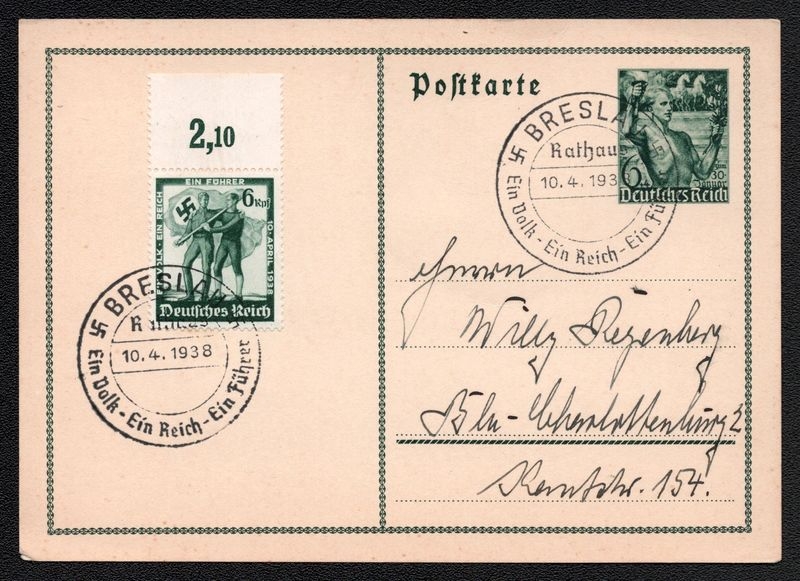 2,10
Postkarte
EIN VOLK · EIN REICH
EIN FÜHRER
10. APRIL 1938
6 Rpf
Deutsches Reich
BRESLAU
10.4.1938
Ein Volk - Ein Reich - Ein Führer
6
30.
Januar
Deutsches Reich
BRESLAU
Rathaus
10.4.1938
Ein Volk - Ein Reich - Ein Führer
Herrn
Willy Regenberg
Bln-Charlottenburg 2
Kantstr. 154.